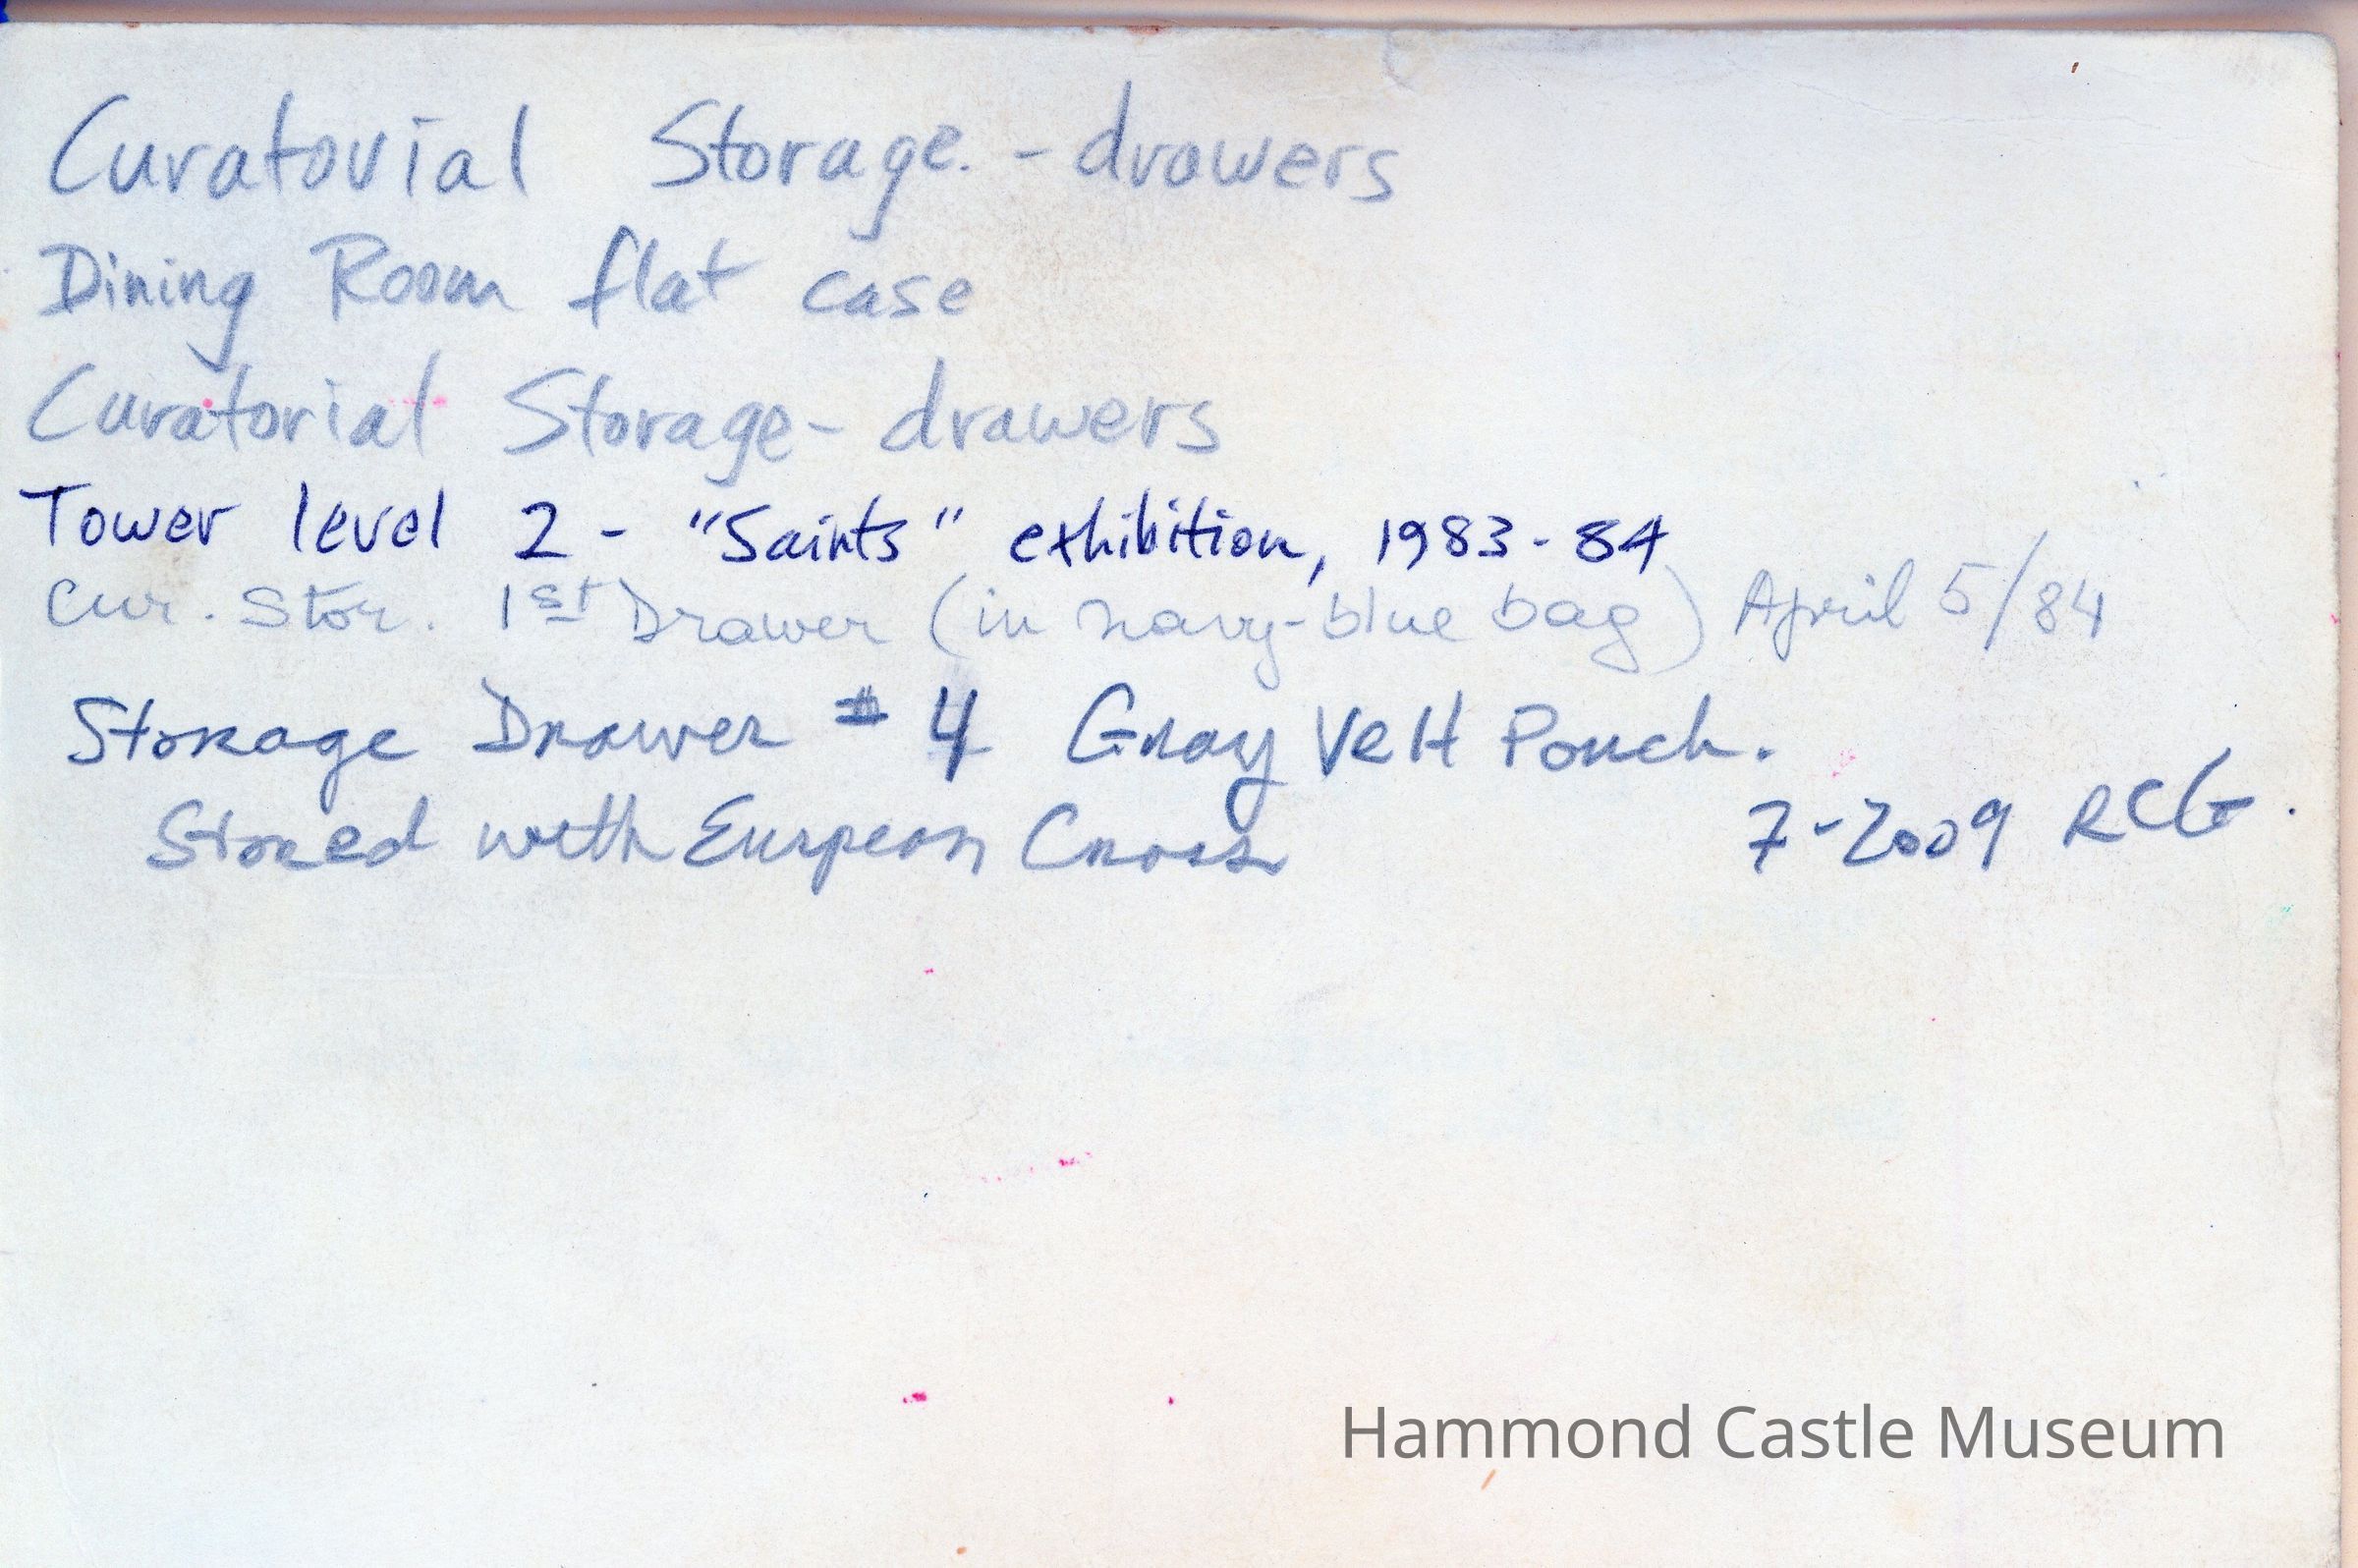 Curatorial Storage. - drawers
Dining Room flat case
Curatorial Storage - drawers
Tower level 2 - "Saints" exhibition, 1983-84
Cur. Stor. 1st Drawer (in navy-blue bag) April 5/84
Storage Drawer # 4 Gray Velt Pouch.
Stored with Eurpean Cross
7-2009 RCG.
Hammond Castle Museum